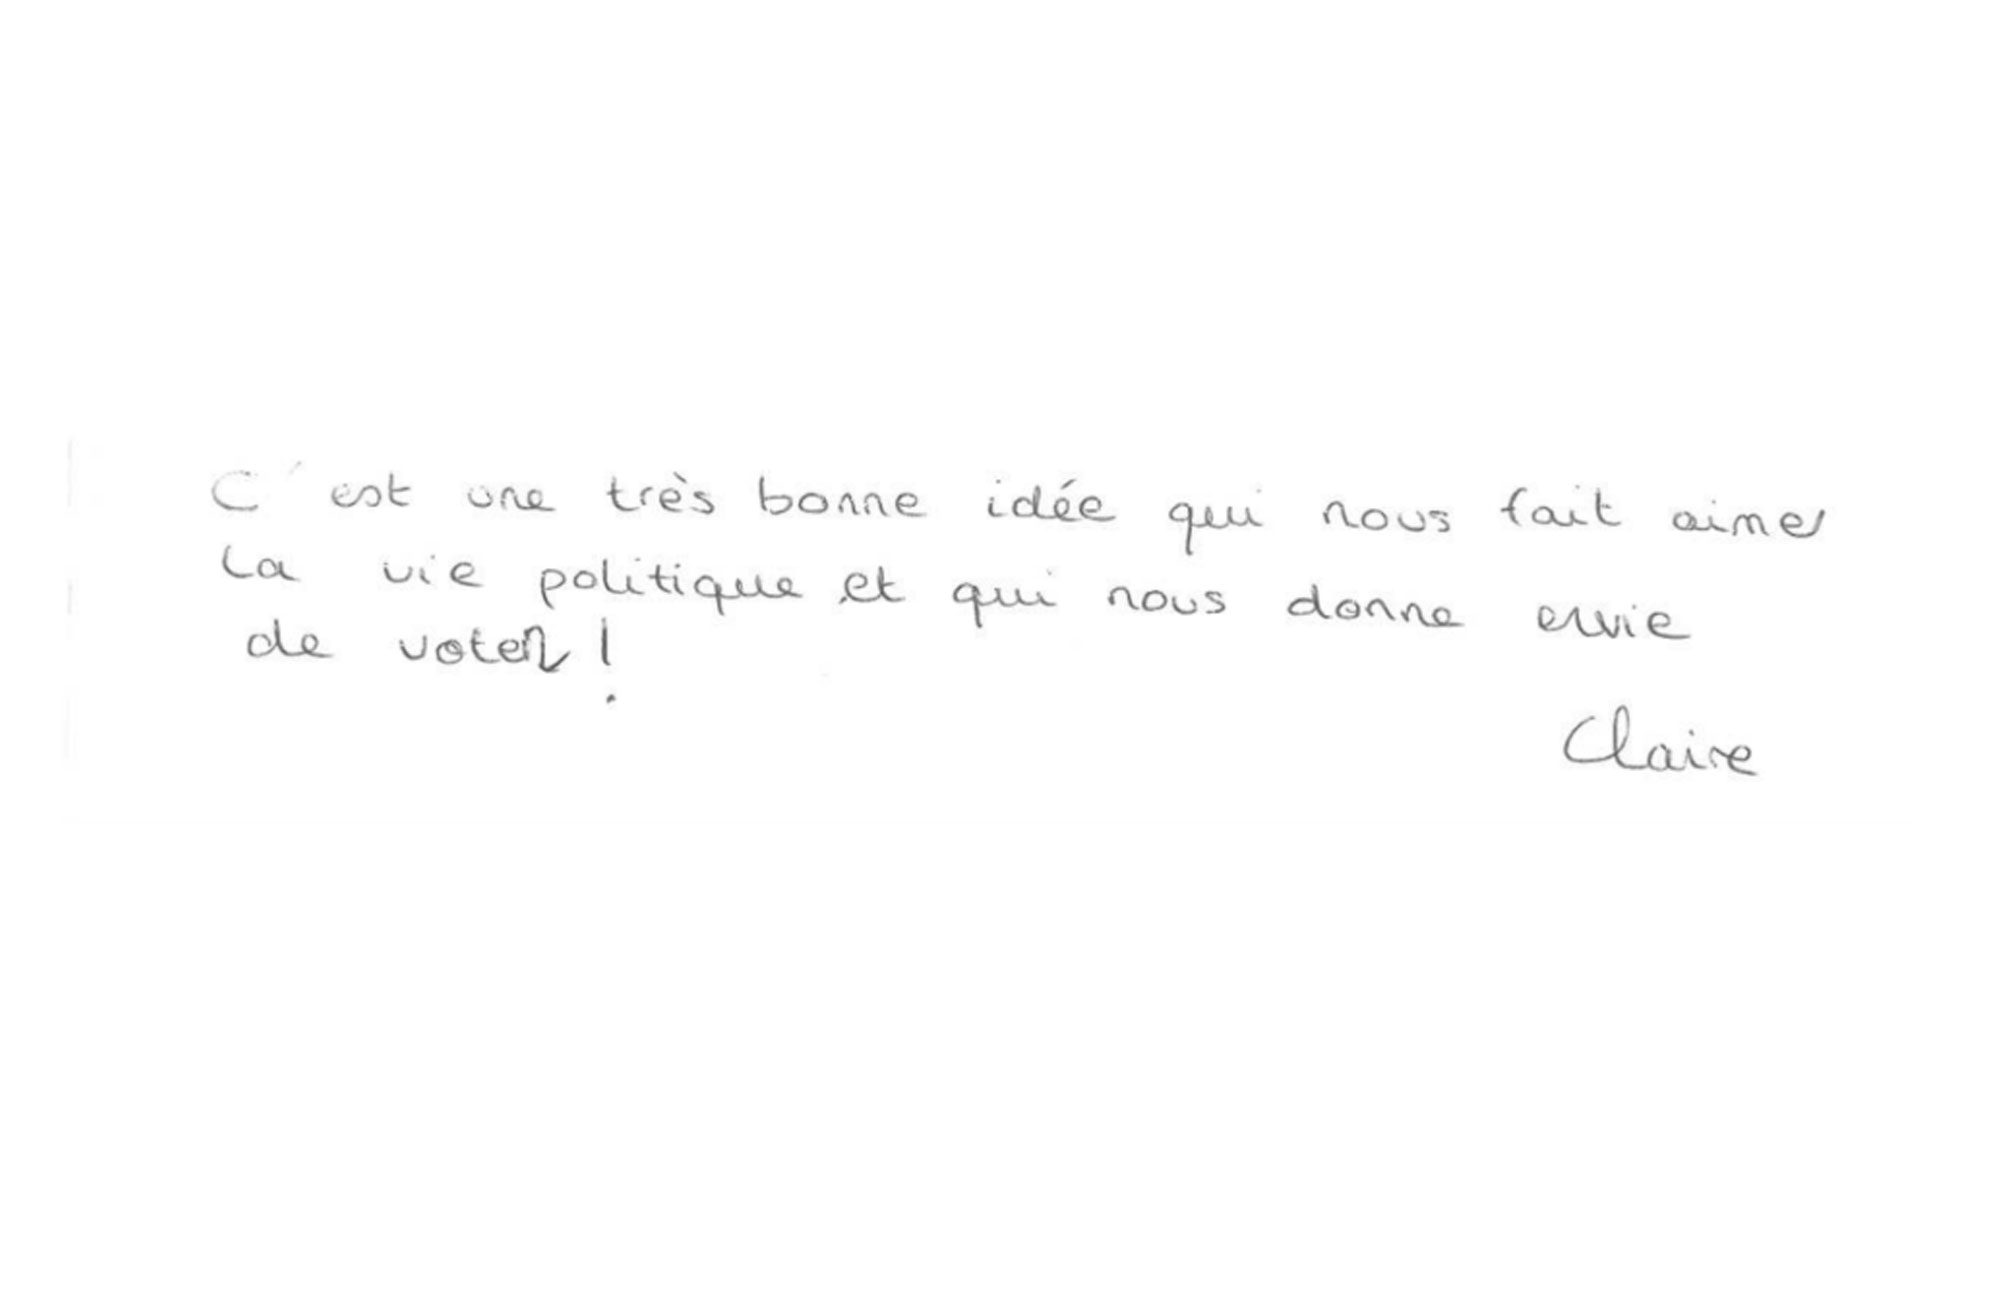 C'est une très bonne idée qui nous fait aimer
la vie politique et qui nous donne envie
de voter !
Claire